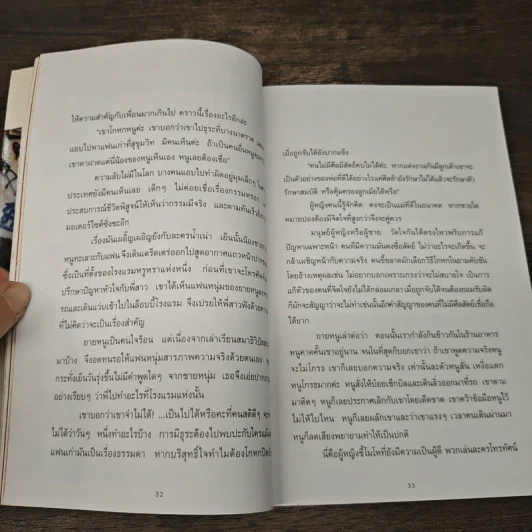 ให้ความสำคัญกับเพื่อนมากเกินไป คราวนี้เรื่องอะไรอีกล่ะ
"เขาโกหกหนูค่ะ เขาบอกว่าเขาไปธุระที่บางนาตราด
แอบไปหาแฟนเก่าที่สุขุมวิท มีคนเห็นค่ะ ถ้าเป็นคนอื่น
เขาตาฝาดแต่นี่น้องของหนูเห็นเอง หนูเลยต้องเชื่อ"
ความลับไม่มีในโลก บางคนแอบไปทำผิดอยู่มุมเล็กๆ
ประเทศยังมีคนเห็นเลย เด็กๆ ไม่ค่อยเชื่อเรื่องกรรม
ประสบการณ์ชีวิตพิสูจน์ให้เห็นว่ากรรมมีจริง และตามทันเร็ว
มอเตอร์ไซค์ซิ่งซะอีก
เรื่องมันเผอิญเผอิญยังกับละครน้ำเน่า เย็นนั้นน้อง
หนูทะเลาะกับแฟน จึงเดินเตร็ดเตร่ออกไปสูดอากาศแถวหน้าปาก
ซึ่งเป็นที่ตั้งของโรงแรมหรูหราแห่งหนึ่ง ก่อนที่เขาจะโทรศัพท์
ปรึกษาปัญหาหัวใจกับพี่สาว เขาได้เห็นแฟนหนุ่มของยายหนู
รถและเดินแว่บเข้าไปในล็อบบี้โรงแรม จึงเปรยให้พี่สาวฟังด้วย
ที่ไม่คิดว่าจะเป็นเรื่องสำคัญ
ยายหนูเป็นคนใจร้อน แต่เนื่องจากเล่าเรียนสมาธิวิปัสสนา
มาบ้าง จึงอดทนรอให้แฟนหนุ่มสารภาพความจริงด้วยตนเอง
กระทั่งเย็นวันรุ่งขึ้นไม่มีคำพูดใดๆ จากชายหนุ่ม เธอจึงเอ่ยปาก
อย่างเรียบๆ ว่าพี่ไปทำอะไรที่โรงแรมแห่งนั้น
เขาบอกว่าเขาจำไม่ได้! ...เป็นไปได้หรือคะที่คนสติดีๆ
ไม่ได้ว่าวันๆ หนึ่งทำอะไรบ้าง การมีธุระต้องไปพบปะกับใคร
แฟนเก่ามันเป็นเรื่องธรรมดา หากบริสุทธิ์ใจทำไมต้องโกหกปิดบัง
32
เมื่อถูกจับได้ยังปากแข็ง
"คนไม่มีศีลมีสัตย์คบไม่ได้ค่ะ หากแต่งงานกันมีลูกแล้วเขาจะ
เป็นตัวอย่างของพ่อที่ดีได้อย่างไรแค่ศีลห้ายังรักษาไม่ได้แล้วจะรักษาตัว
รักษาสมบัติ หรือคุ้มครองลูกเมียได้หรือ"
ผู้หญิงคนนี้รู้จักคิด คงจะเป็นแม่ที่ดีในอนาคต หากชายใด
หมายปองต้องมีจิตใจที่สูงกว่าจึงจะคู่ควร
มนุษย์ผู้หญิงหรือผู้ชาย วัดใจกันได้ตรงไหวพริบการแก้
ปัญหาเฉพาะหน้า คนที่มีความมั่นคงซื่อสัตย์ ไม่ว่าอะไรจะเกิดขึ้น จะ
กล้าเผชิญหน้ากับความจริง คนขี้ขลาดมักเลือกวิธีโกหกในยามคับขัน
โดยอ้างเหตุผลเช่น ไม่อยากบอกเพราะเกรงว่าจะไม่สบายใจ เป็นการ
แก้ตัวของคนที่จิตใจยังไม่ได้กล่อมเกลา เมื่อถูกจับได้จนต้องยอมรับผิด
ก็มักจะสัญญาว่าจะไม่ทำเช่นนั้นอีกคำสัญญาของคนที่ไม่มีศีลสัตย์เชื่อถือ
ได้ยาก
ยายหนูเล่าต่อว่า ตอนนั้นเรากำลังกินข้าวกันในร้านอาหาร
หนูคาดคั้นเขาอยู่นาน จนในที่สุดก็บอกเขาว่า ถ้าเขาพูดความจริงหนู
จะไม่โกรธ เขาก็เลยบอกความจริง เท่านั้นละตัวหนูสั่น เหงื่อแตก
หนูโกรธมากค่ะ หนูสั่งให้บ๋อยเช็กบิลและเดินลิ่วออกมาที่รถ เขาตาม
มาติดๆ หนูก็เลยประกาศเลิกกับเขาโดยเด็ดขาด เขาคว้าข้อมือหนูไว้
ไม่ให้ไปไหน หนูก็เลยผลักเขาและว่าเขาแรงๆ เวลาคนเดินผ่านมา
หนูก็ลดเสียงพยายามทำให้เป็นปกติ
นี่คือผู้หญิงขี้โมโหที่ยังมีความเป็นผู้ดี พวกเล่นละครโทรทัศน์
33